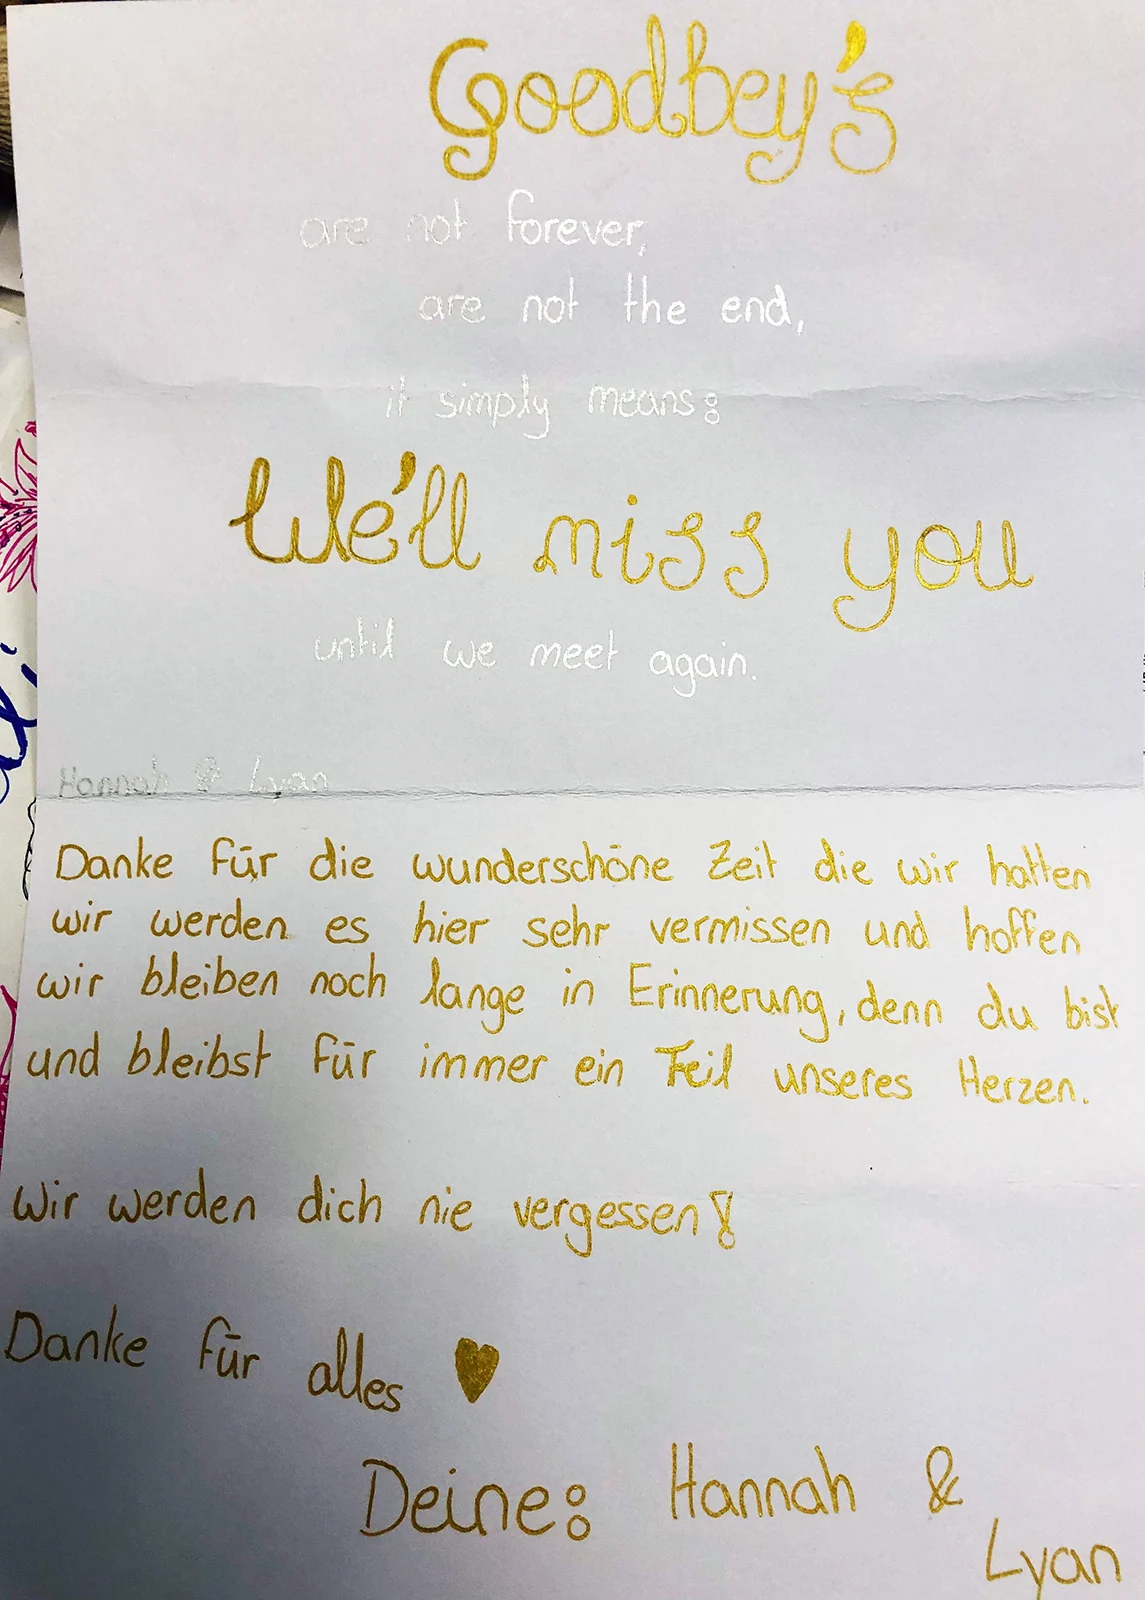 Goodbey's
are not forever,
are not the end,
it simply means:
We'll miss you
until we meet again.
Hannah & Lyan
Danke für die wunderschöne Zeit die wir hatten
wir werden es hier sehr vermissen und hoffen
wir bleiben noch lange in Erinnerung, denn du bist
und bleibst für immer ein Teil unseres Herzen.
Wir werden dich nie vergessen!
Danke für alles ♥
Deine: Hannah &
Lyan